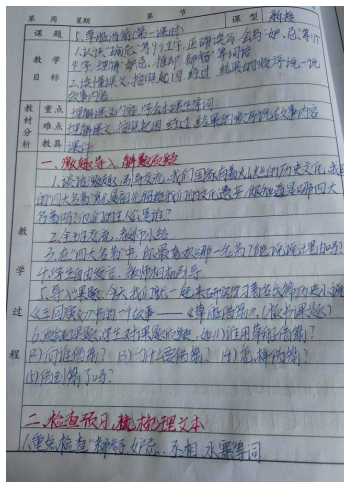 第 周 星期 第 节 课型 新授
课题 5、草船借箭(第一课时)
教学目标 1.认识"瑜、忌"等9个生字,正确读写,会写"妒、忌"等11个
生字,理解"妒忌、推却、都督"等词语
2.读懂课文,按照起因、经过、结果的顺序说一说
故事内容
教材分析 重点 理解课文内容,学会本课生字词
难点 理解课文,按照起因、经过、结果的顺序说故事内容
教具 课件
教学过程
一、激趣导入,解题质疑
1.谈话激趣,引导交流:我们国家有着悠久的历史文化,我国
的"四大名著"就是留给我们的文化遗产,你知道是哪四大
名著吗?他们的主人公是谁?
2.全班交流,教师小结
3.在"四大名著"中,你最喜欢哪一名著?能说说理由吗?
4.学生自由发言,教师相机引导
5.导入课题:今天我们就一起来研究学习著名长篇历史小说
《三国演义》中的一个故事——《草船借箭》。(板书课题)
6.质疑课题:学生对课题质疑,如(1)谁用草船借箭?
(2)向谁借箭?(3)为什么要借箭?(4)怎样借箭?
(5)借到箭了吗?
二、检查预习,梳理文本
1.重点检查"都督、妒忌、丞相、水寨"等词